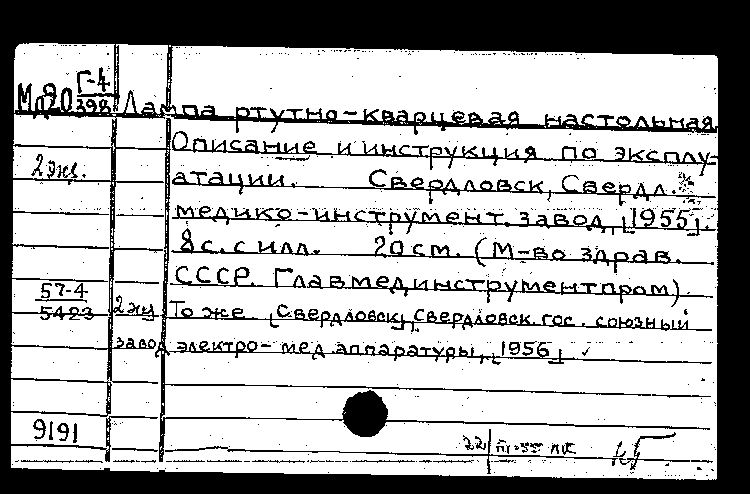 Г-4
Мд20 398 Лампа ртутно-кварцевая настольная
Описание и инструкция по эксплу-
2 экз. атации. Свердловск, Свердл.
медико-инструмент. завод, [1955].
8 с. с илл. 20 см. (М-во здрав.
СССР. Главмединструментпром)
57-4
5423 2 экз То же [Свердловск], Свердловск. гос. союзный
завод электро-мед. аппаратуры, [1956]
9191
22/III-55